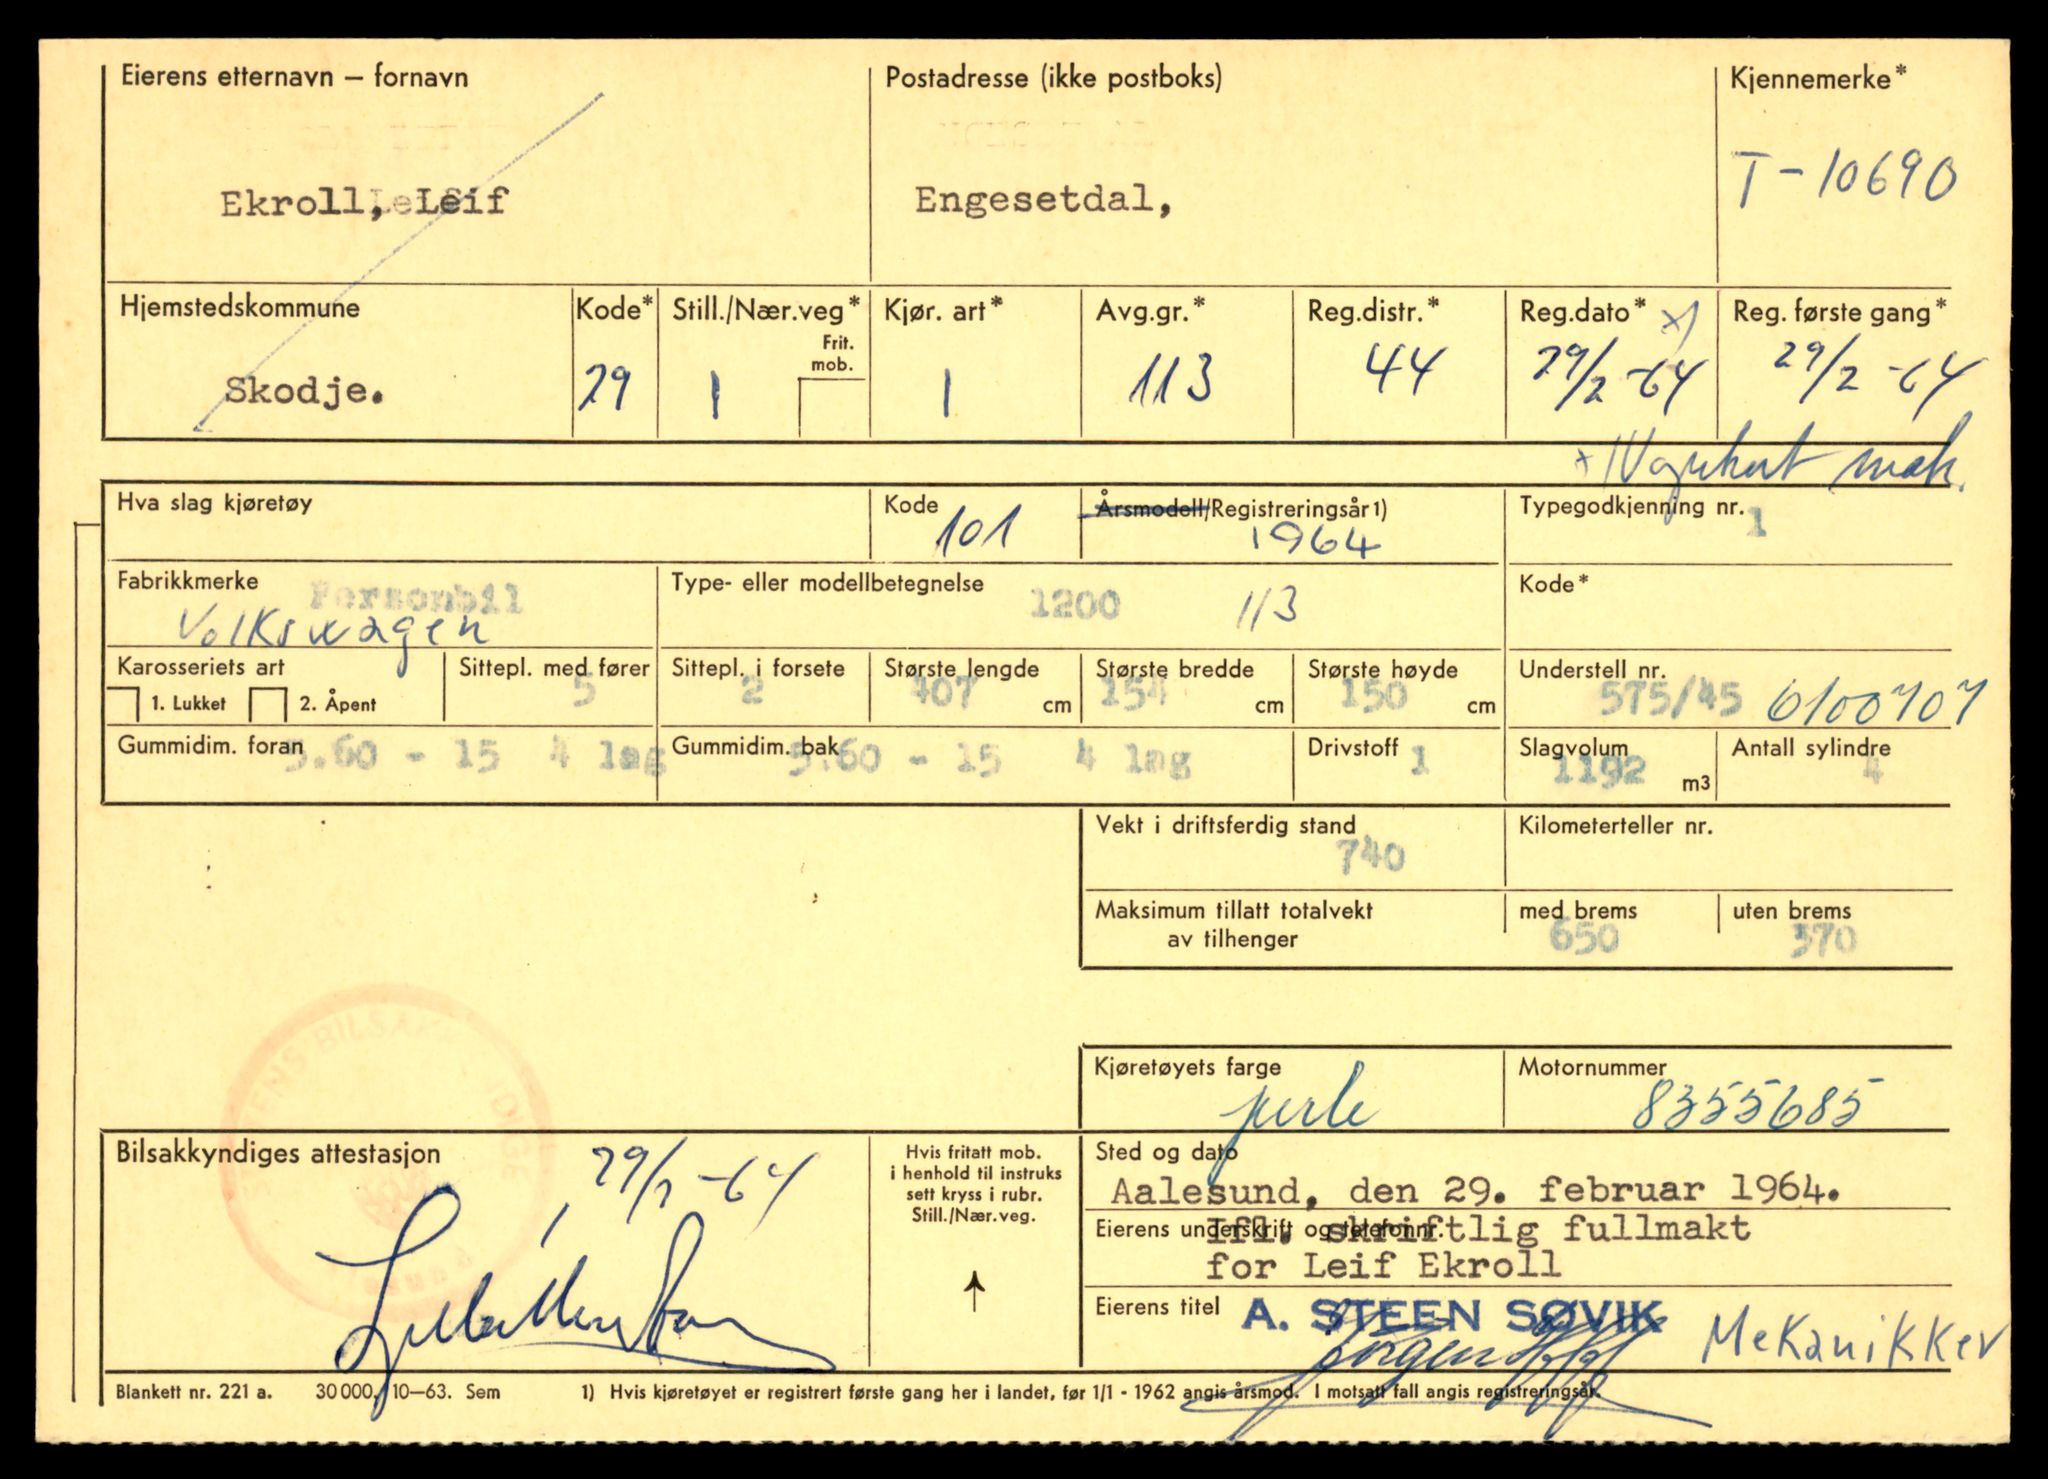 Eierens etternavn — fornavn
Postadresse (ikke postboks)
Kjennemerke*
Ekroll, Leif
Engesetdal,
T-10690
Hjemstedskommune
Kode*
Still./Nær.veg*
Frit. mob.
Kjør. art*
Avg.gr.*
Reg.distr.*
Reg.dato* x)
Reg. første gang*
Skodje.
29
1
1
113
44
29/2-64
29/2-64
Hva slag kjøretøy
Kode
101
Årsmodell/Registreringsår1)
1964
Typegodkjenning nr.
1
Fabrikkmerke
Personbil
Volkswagen
Type- eller modellbetegnelse
1200
113
Kode*
Karosseriets art
1. Lukket
2. Åpent
Sittepl. med fører
5
Sittepl. i forsete
2
Største lengde
407 cm
Største bredde
154 cm
Største høyde
150 cm
Understell nr.
575/45 6100707
Gummidim. foran
5.60 - 15 4 lag
Gummidim. bak
5.60 - 15 4 lag
Drivstoff
1
Slagvolum
1192 m3
Antall sylindre
4
Vekt i driftsferdig stand
740
Kilometerteller nr.
Maksimum tillatt totalvekt
av tilhenger
med brems
650
uten brems
370
Kjøretøyets farge
perle
Motornummer
8355685
Bilsakkyndiges attestasjon
29/2-64
Hvis fritatt mob.
i henhold til instruks
sett kryss i rubr.
Still./Nær.veg.
Sted og dato
Aalesund, den 29. februar 1964.
Eierens underskrift og telefonnr.
Ifl. skriftlig fullmakt
for Leif Ekroll
Eierens titel
A. STEEN SØVIK
Mekanikker
Blankett nr. 221 a. 30 000. 10—63. Sem
1) Hvis kjøretøyet er registrert første gang her i landet, før 1/1 - 1962 angis årsmod. I motsatt fall angis registreringsår.